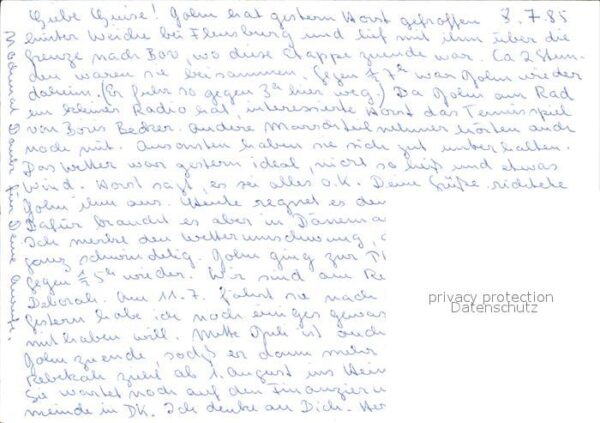 Liebe Luise! John hat gestern Horst getroffen 8.7.85
hinter Weiche bei Flensburg und lief mit ihm über die
Grenze nach Bov, wo diese Etappe zuende war. Ca 2 Stun-
den waren sie beisammen. Gegen 7h war John wieder
daheim. (Er fuhr so gegen 3h hier weg) Da John am Rad
ein kleines Radio hat, interessierte Horst das Tennisspiel
von Boris Becker. Andere Marschteilnehmer hörten auch
noch mit. Ansonsten haben sie sich gut unterhalten.
Das Wetter war gestern ideal, nicht so heiß und etwas
Wind. Horst sagt, es sei alles o.K. Deine Grüße richtete
John ihm aus. Heute regnet es den
Dafür braucht es aber in Dänema
Ich merke den Wetterumschwung,
ganz schwindelig. John ging zur
gegen 5h wieder. Wir sind am Re
Deborah. Am 11.7. fährt sie nach
Gestern habe ich noch einiges gewas
mithaben will. Mitte Juli ist auch
John zuende, sodaß er dann mehr
Rebekah zieht ab 1. August ins Heim
Sie wartet noch auf den Finanzier
meinde in DK. Ich denke an Dich. Her
Nochmal Danke für Deine Anrufe.
privacy protection
Datenschutz